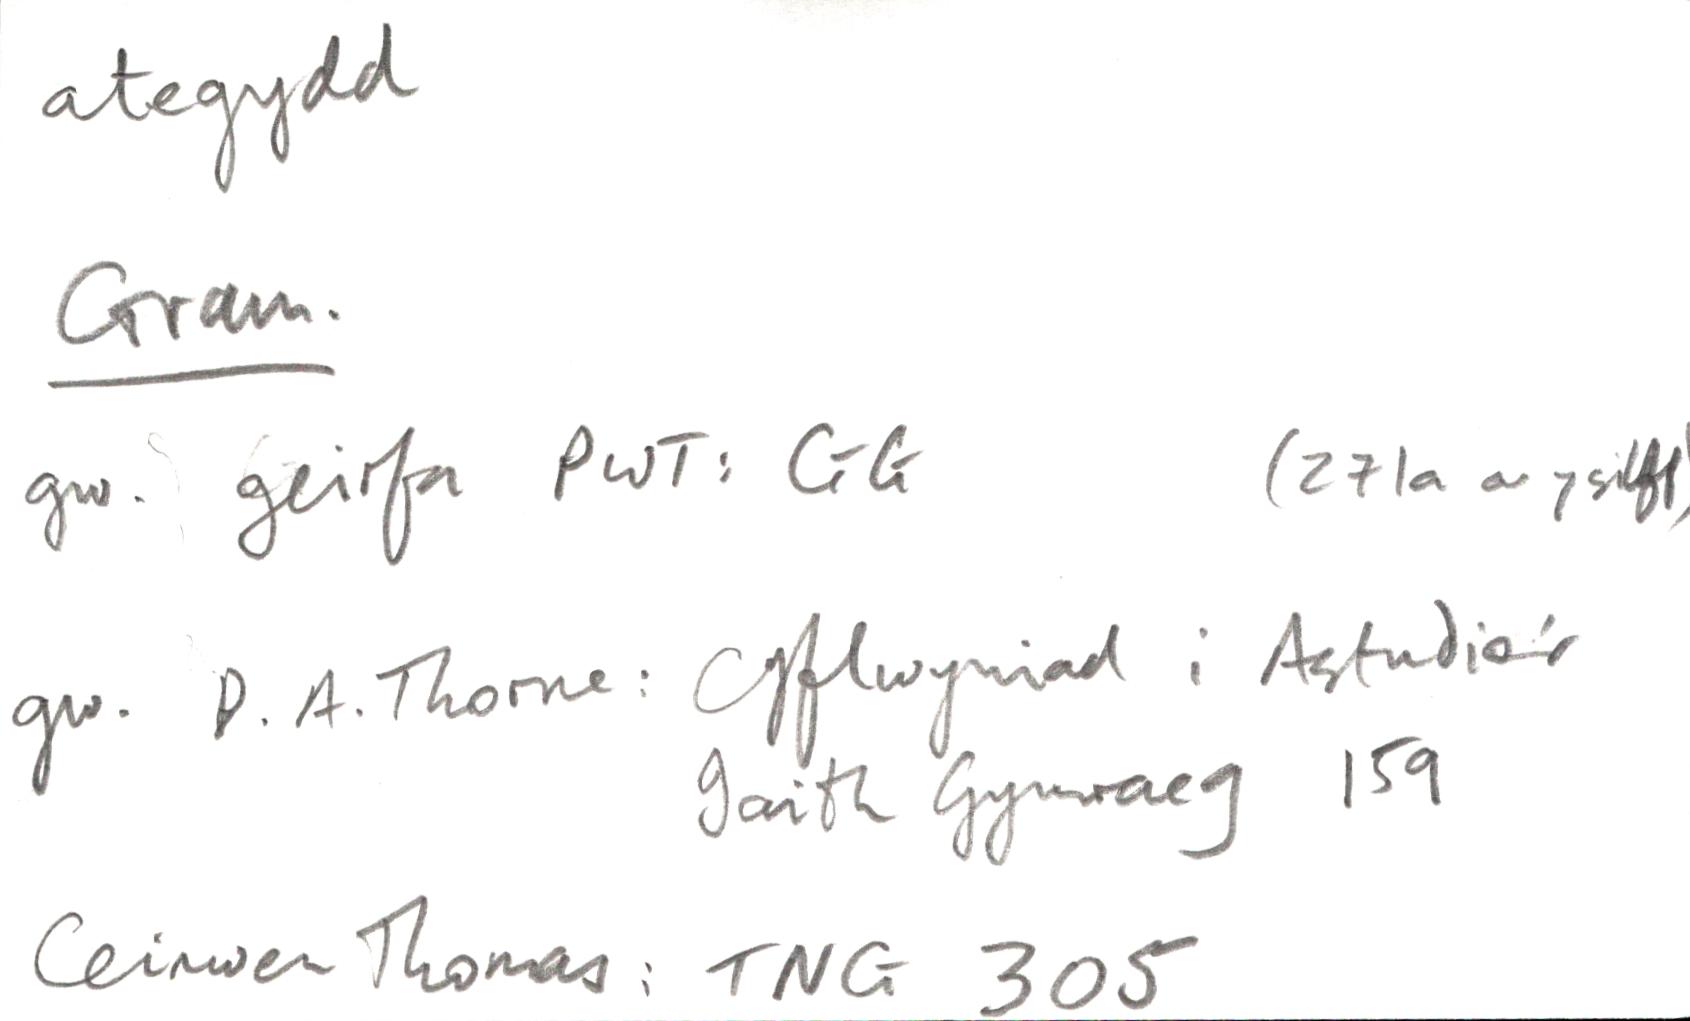 ategydd
Gram.
gw. geirfa PWT: GG (271a ar y silff)
gw. D. A. Thorne: Cyflwyniad i Astudio'r
Iaith Gymraeg 159
Ceinwen Thomas: TNG 305